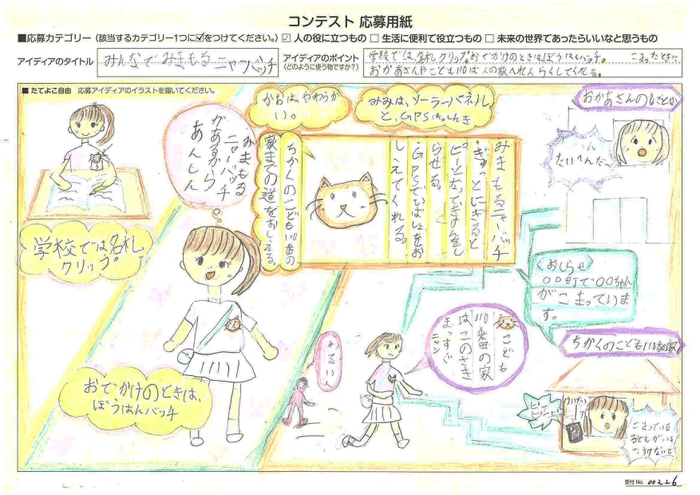 コンテスト 応募用紙
■応募カテゴリー (該当するカテゴリー1つに☑をつけてください。) ☑ 人の役に立つもの □ 生活に便利で役立つもの □ 未来の世界であったらいいなと思うもの
アイディアのタイトル
みんなでみまもるニャーバッチ
アイディアのポイント
(どのように使う物ですか?)
学校では、名札クリップ。おでかけのときはぼうはんバッチ。 こまったときに
おかあさんや
■たてよこ自由 応募アイディアのイラストを描いてください。
学校では名札
クリップ。
みまもる
ニャーバッチ
があるから
あんしん
おでかけのときは、
ぼうはんバッチ
かおは、やわらか
い。
みみは、ソーラーパネル
と、GPS
みまもるニャーバッチ
・ぎゅっとにぎると
らせる。
・GPSで
しえてくれる。
ちかくのこども110番の
家までの道をおしえる。
わるい人
こども
110番の家
はこのさき
まっすぐ
ニャン
おかあさんの
たいへんだー
〈おしらせ〉
〇〇町で〇〇ちゃん
がこまっていま
す。
ちかくのこども110番の家
こまっている
子どもがいる